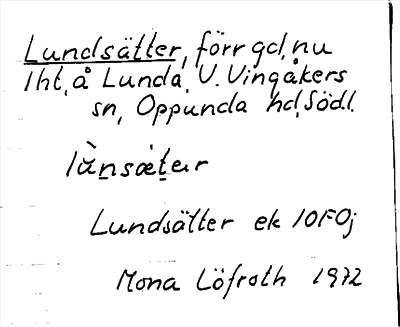 Lundsätter, förr gd, nu
lht, å Lunda, V. Vingåkers
sn, Oppunda hd, Södl.
Lundsätter ek 10F0j
Mona Löfroth 1972